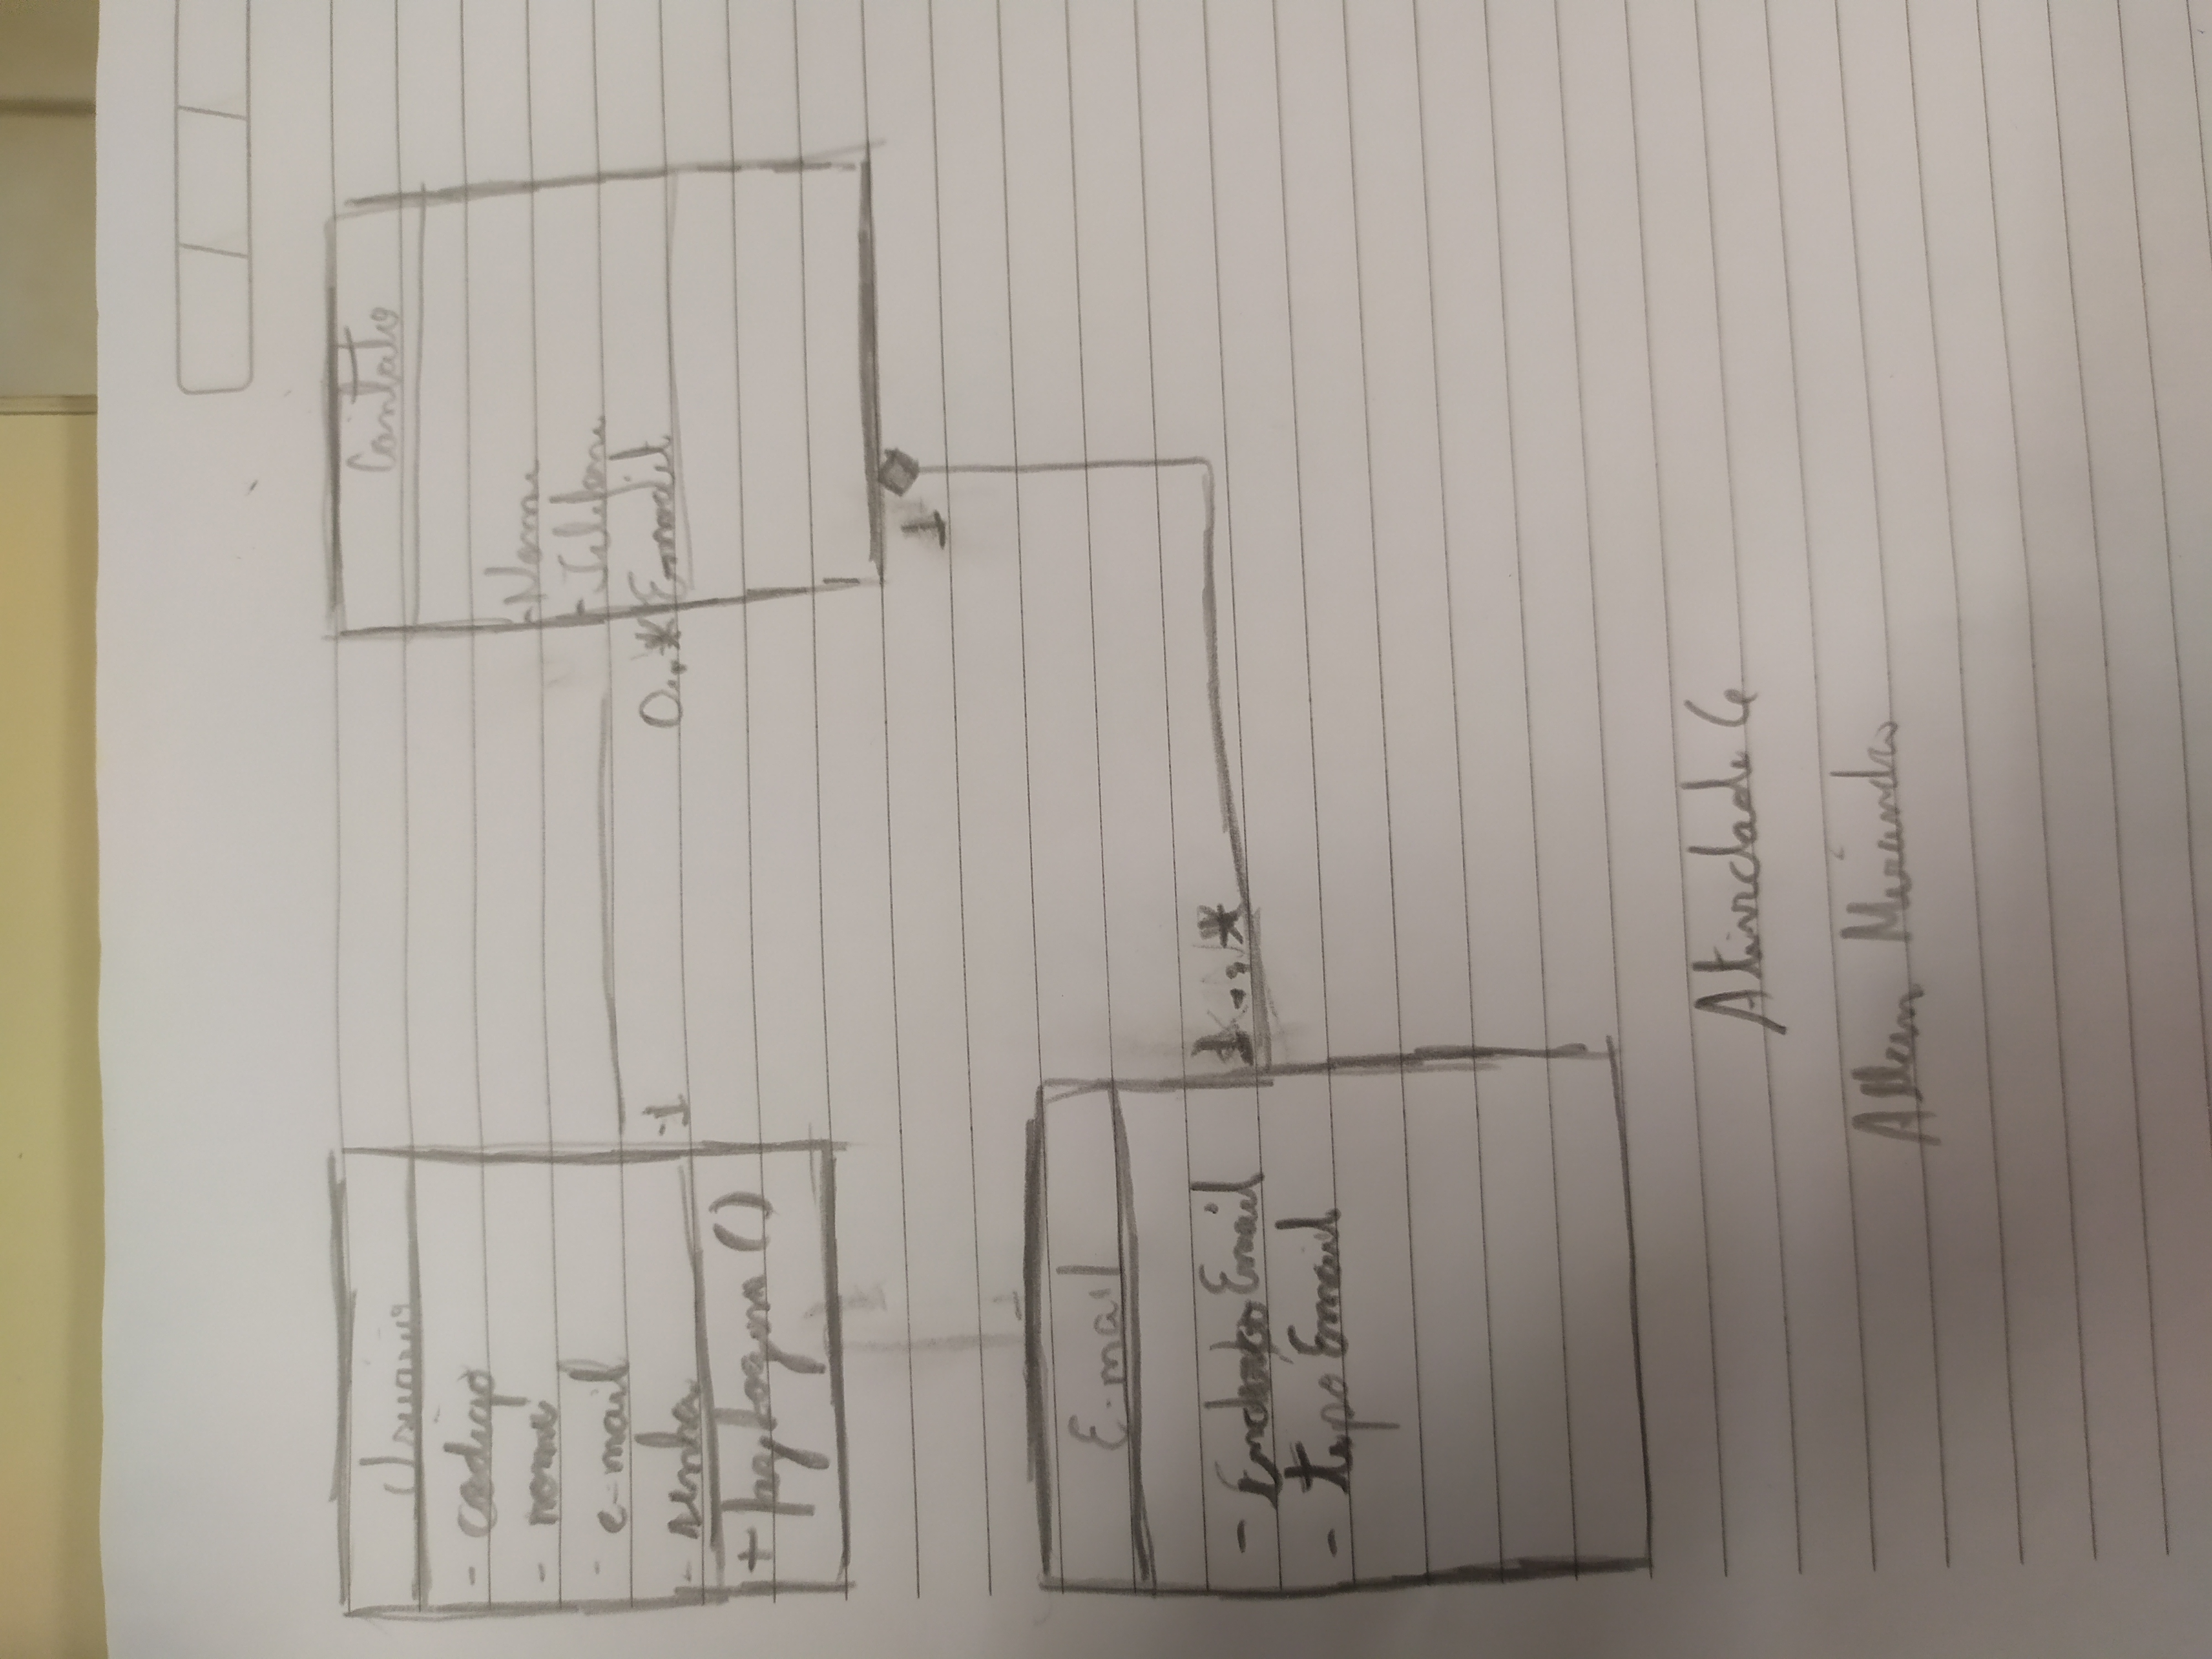 Usuario
- codigo
- nome
- e-mail
- senha
+ fazLogin ()
1
0..*
Contato
- Nome
- Telefone
E-mail
1
E-mail
- Endereço Email
- tipo Email
1..*
Atividade 6
Allan Miranda